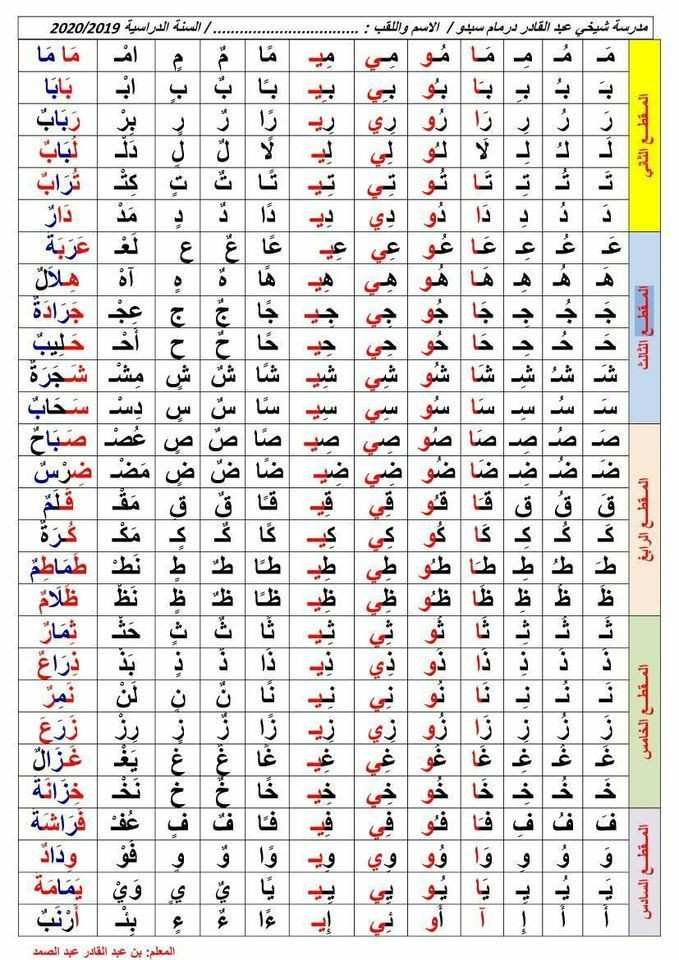 مدرسة شيخي عبد القادر درمام سبدو / الاسم واللقب : ................................ / السنة الدراسية 2020/2019
المـقطـع الثاني
مَـ مُـ مِـ مَـا مُـو مِـي مِيـ مًا مٌ مٍ امْـ مَا مَا
بَـ بُـ بِـ بَـا بُـو بِـي بِيـ بًـا بٌ بٍ ابْـ بَابَا
رَ رُ رِ رَا رُو رِي رِيـ رًا رٌ رٍ بِرْ رَبَابٌ
لَـ لُـ لِـ لَا لُـو لِي لِيـ لًا لٌ لٍ دَلْـ لُبَابٌ
تَـ تُـ تِـ تَـا تُـو تِـي تِيـ تًـا تٌ تٍ كِتْـ تُرَابٌ
دَ دُ دِ دَا دُو دِي دِيـ دًا دٌ دٍ مَدْ دَارٌ
المـقطـع الثالث
عَـ عُـ عِـ عَـا عُـو عِـي عِيـ عًا عٌ عٍ لَعْـ عَرَبَة
هَـ هُـ هِـ هَـا هُـو هِـي هِيـ هًا هٌ هٍ آهْ هِـلَالٌ
جَـ جُـ جِـ جَا جُو جِي جِيـ جًا جٌ جٍ عِجْـ جَرَادَةٌ
حَـ حُـ حِـ حَا حُو حِي حِيـ حًا حٌ حٍ أَحْـ حَـلِيبٌ
شَـ شُـ شِـ شَـا شُو شِي شِيـ شًا شٌ شٍ مِشْـ شَـجَرَةٌ
سَـ سُـ سِـ سَـا سُو سِي سِيـ سًا سٌ سٍ دِسْـ سَـحَابٌ
المـقطـع الرابع
صَـ صُـ صِـ صَا صُو صِي صِيـ صًا صٌ صٍ عُصْـ صَـبَاحٌ
ضَـ ضُـ ضِـ ضَا ضُو ضِي ضِيـ ضًا ضٌ ضٍ مَضْـ ضِرْسٌ
قَ قُ قِ قَـا قُـو قِي قِيـ قًـا قٌ قٍ مَقْـ قَـلَمٌ
كَـ كُـ كِـ كَا كُو كِي كِيـ كًا كٌـ كٍـ مَكْـ كُـرَةٌ
طَـ طُـ طِـ طَـا طُـو طِي طِيـ طًـا طٌـ طٍ نَطْـ طَمَاطِمٌ
ظَـ ظُـ ظِـ ظَـا ظُـو ظِي ظِيـ ظًـا ظٌـ ظٍ نَظْـ ظَلَامٌ
المـقطـع الخامس
ثَـ ثُـ ثِـ ثَـا ثُـو ثِي ثِـيـ ثًا ثٌ ثٍ حَثْـ ثِمَارٌ
ذَ ذُ ذِ ذَا ذُو ذِي ذِيـ ذًا ذٌ ذٍ بَذْ ذِرَاعٌ
نَـ نُـ نِـ نَـا نُـو نِـي نِـيـ نًا نٌ نٍ لَنْ نَمِرٌ
زَ زُ زِ زَا زُو زِي زِيـ زًا زٌ زٍ رِزْ زَرَعَ
غَـ غُـ غِـ غَا غُو غِي غِيـ غًا غٌ غٍ يَغْـ غَـزَالٌ
خَـ خُـ خِـ خَا خُو خِي خِيـ خًا خٌ خٍ نَخْـ خِزَانَة
المـقطـع السادس
فَ فُ فِ فَـا فُـو فِي فِيـ فًـا فٌ فٍ عُفْـ فَرَاشَة
وَ وُ وِ وَا وُو وِي وِيـ وًا وٌ وٍ فَوْ وِدَادٌ
يَـ يُـ يِـ يَـا يُـو يِي يِـيـ يًا يٌ يٍ وَيْ يَمَامَة
أَ أُ إِ آ أُو ئِي إِيـ ءًا ءٌ ءٍ بِئْـ أَرْنَبٌ
المعلم: بن عبد القادر عبد الصمد